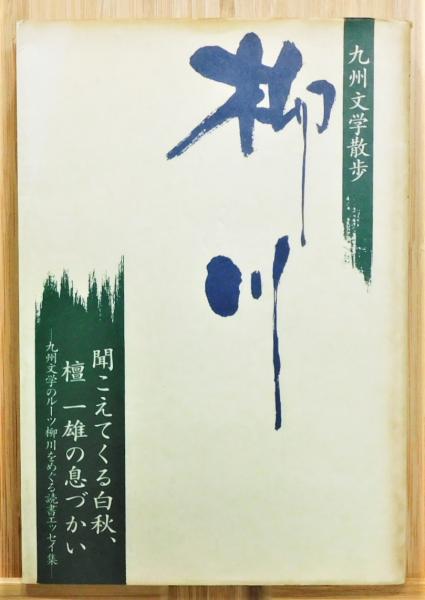 九州文学散歩
柳川
聞こえてくる白秋、
檀 一雄の息づかい
―九州文学のルーツ柳川をめぐる読書エッセイ集―